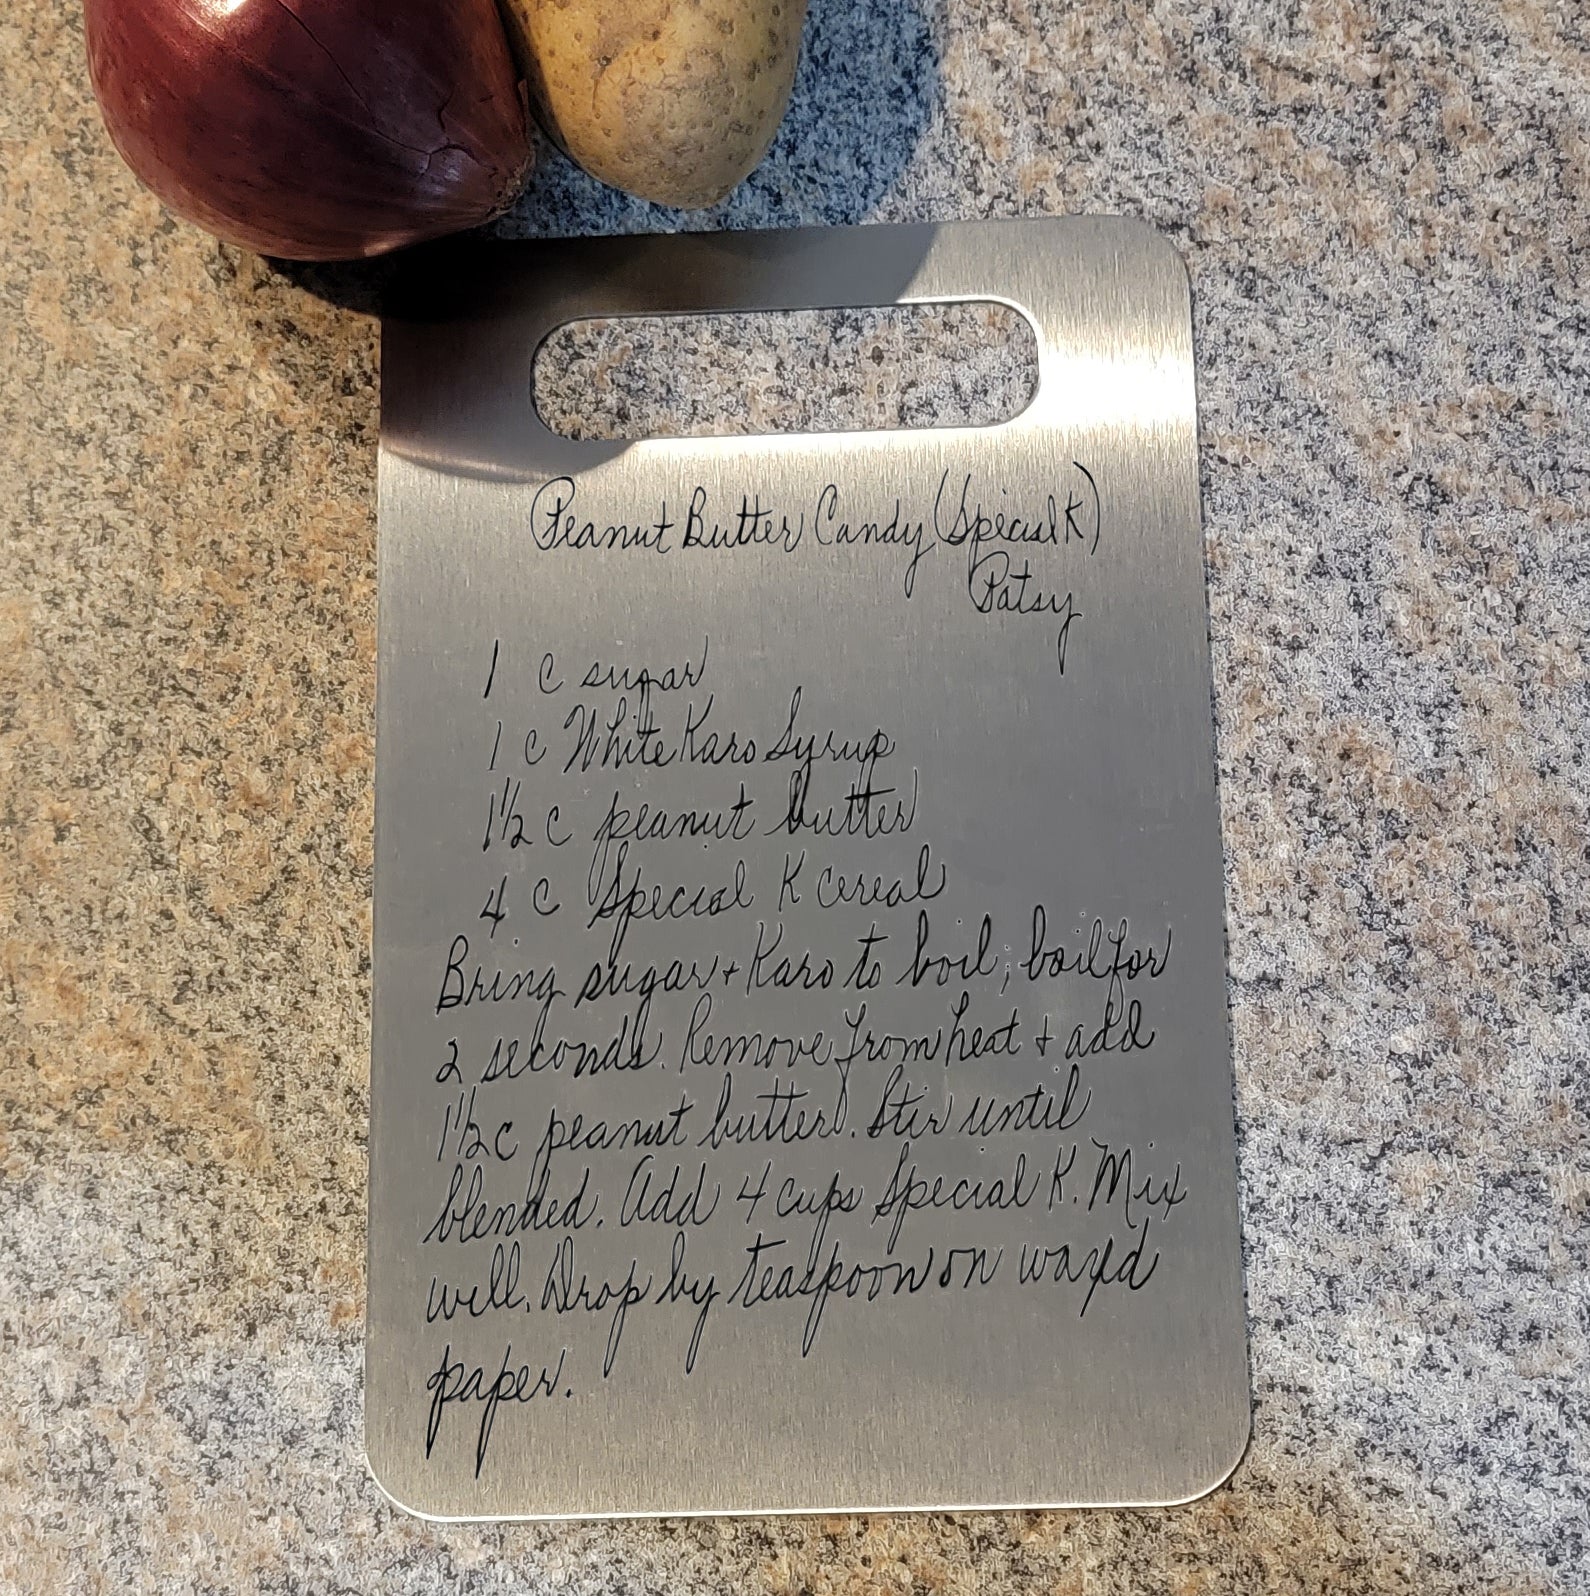 Peanut Butter Candy (Special K)
Patsy
1 c sugar
1 c White Karo Syrup
1½ c peanut butter
4 c Special K cereal
Bring sugar + Karo to boil; boil for
2 seconds. Remove from heat + add
1½ c peanut butter. Stir until
blended. Add 4 cups Special K. Mix
well. Drop by teaspoon on wax'd
paper.